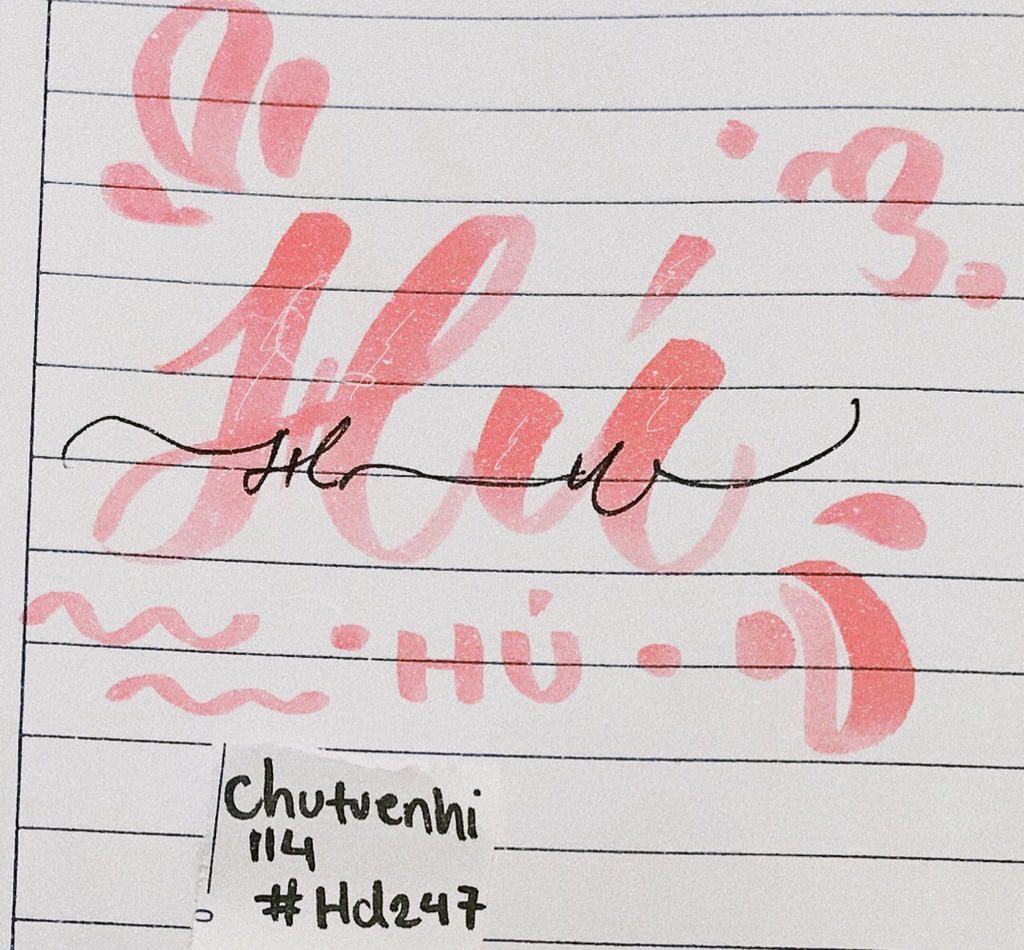 Hú
Hú
HÚ
Chutuenhi
114
#Hd247